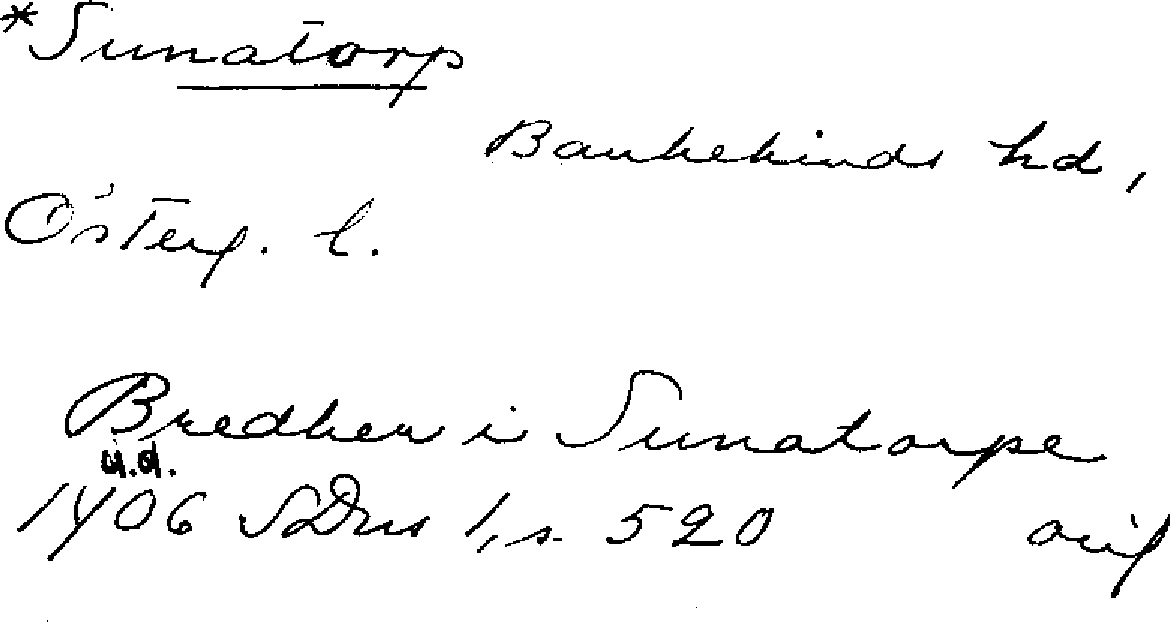 *Sunatorp
Bankekinds hd,
Österg. l.
Bredher i Sunatorpe
u.d.
1406 SDns 1, s. 520 orig